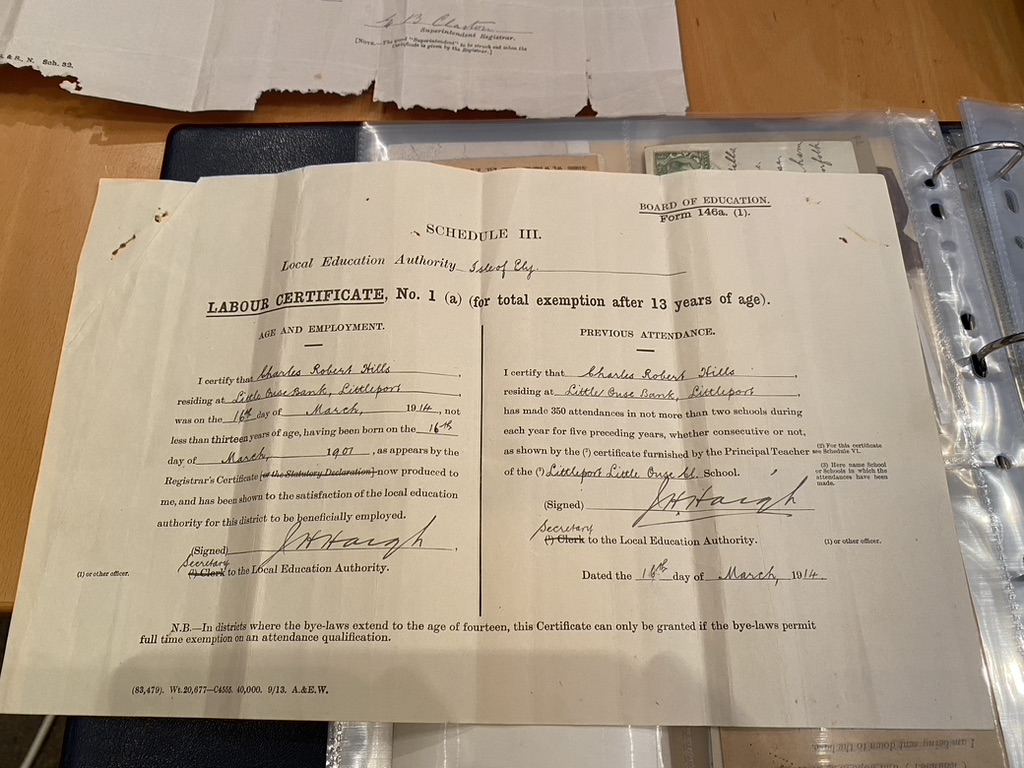 G B Claxton
Superintendent Registrar.
[NOTE.—The word "Superintendent" to be struck out when the
Certificate is given by the Registrar.]
& R., N. Sch. 32.
BOARD OF EDUCATION.
Form 146a. (1).
SCHEDULE III.
Local Education Authority Isle of Ely.
LABOUR CERTIFICATE, No. 1 (a) (for total exemption after 13 years of age).
AGE AND EMPLOYMENT.
I certify that Charles Robert Hills,
residing at Little Ouse Bank, Littleport,
was on the 16th day of March, 1914, not
less than thirteen years of age, having been born on the 16th
day of March, 1901, as appears by the
Registrar's Certificate [or the Statutory Declaration] now produced to
me, and has been shown to the satisfaction of the local education
authority for this district to be beneficially employed.
(Signed) J H Haigh.
Secretary
(1) Clerk to the Local Education Authority.
(1) or other officer.
PREVIOUS ATTENDANCE.
I certify that Charles Robert Hills,
residing at Little Ouse Bank, Littleport,
has made 350 attendances in not more than two schools during
each year for five preceding years, whether consecutive or not,
as shown by the (2) certificate furnished by the Principal Teacher
of the (3) Littleport Little Ouse Cl. School.
(2) For this certificate
see Schedule VI.
(3) Here name School
or Schools in which the
attendances have been
made.
(Signed) J H Haigh
Secretary
(1) Clerk to the Local Education Authority.
(1) or other officer.
Dated the 16th day of March, 1914.
N.B.—In districts where the bye-laws extend to the age of fourteen, this Certificate can only be granted if the bye-laws permit
full time exemption on an attendance qualification.
(83,479). Wt.20,677—C4555. 40,000. 9/13. A.&E.W.
I am being sent down to the base